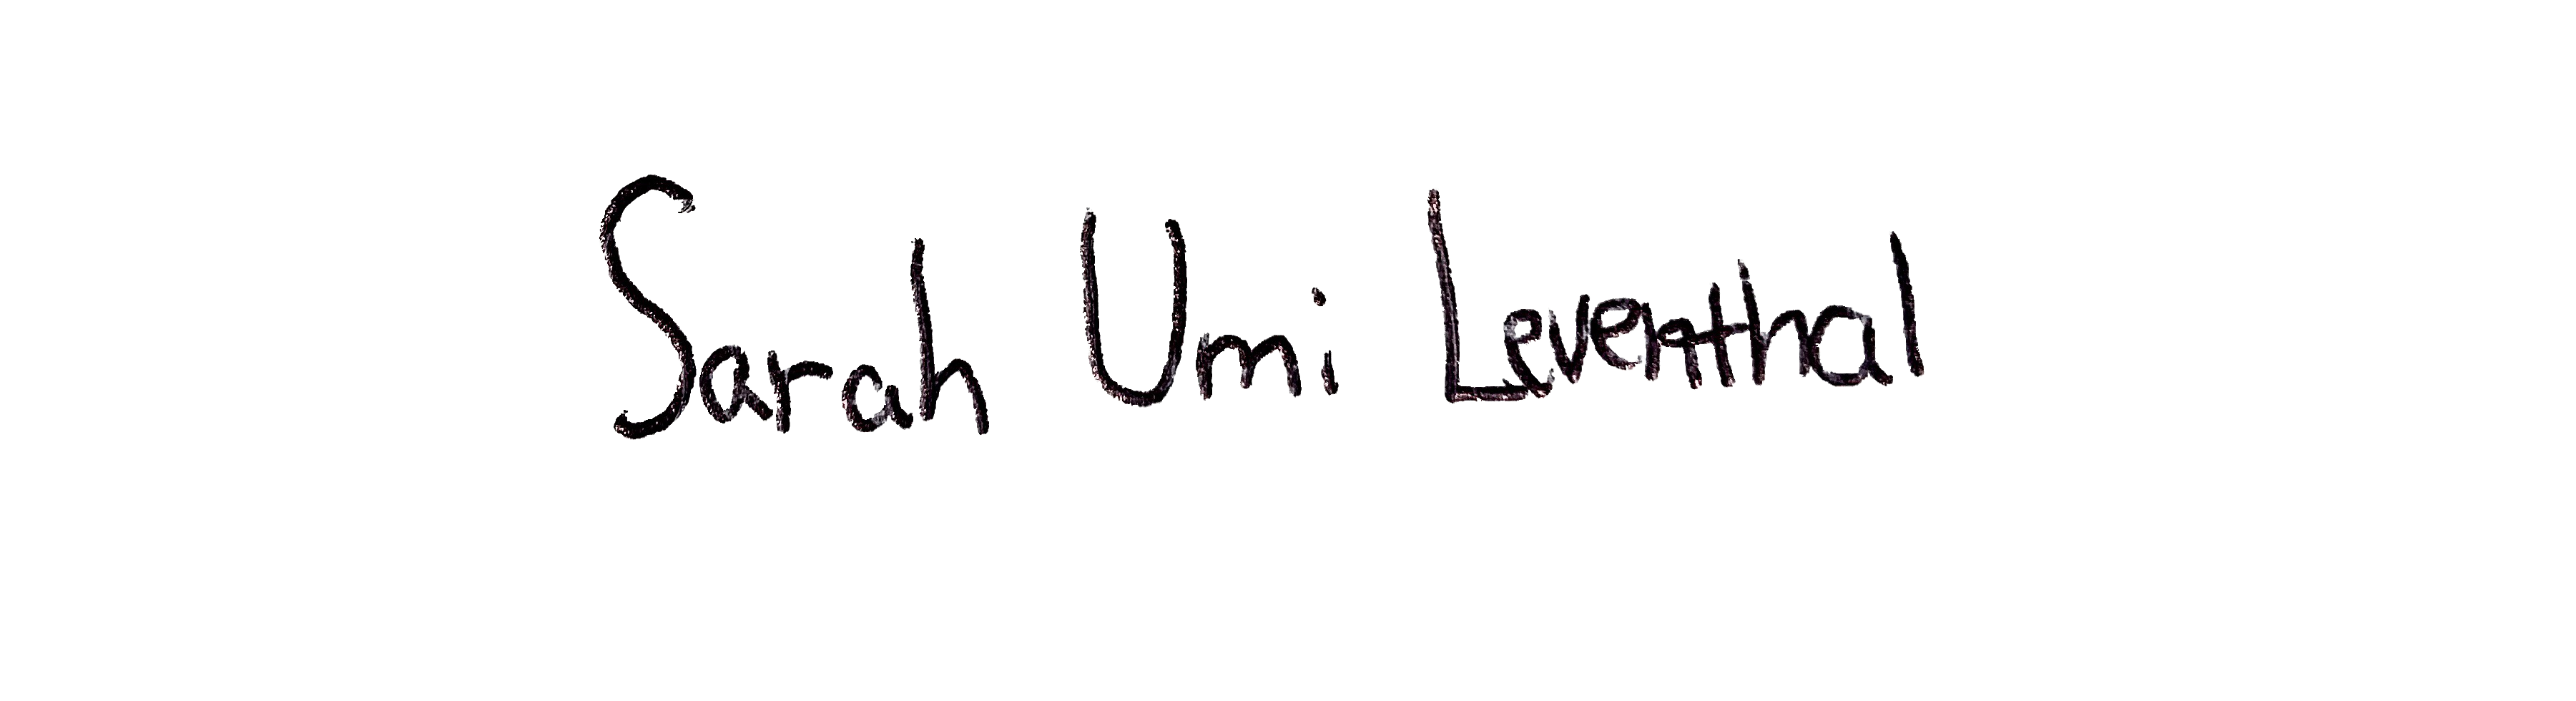 Sarah Umi Leventhal